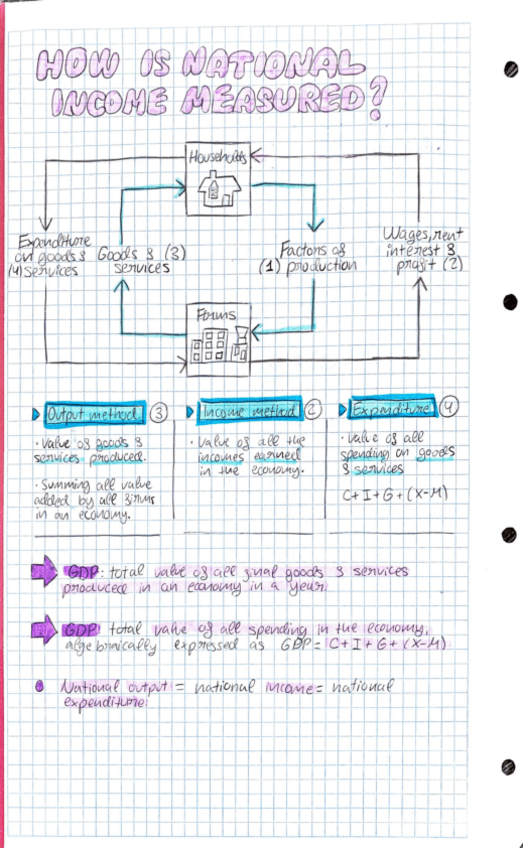 HOW IS NATIONAL
INCOME MEASURED?
Households
Expenditure
on goods &
(4) services
Goods & (3)
services
Factors of
(1) production
Wages, rent
interest &
profit (2)
Firms
Output method (3)
• Value of goods &
services produced.
• Summing all value
added by all firms
in an economy.
Income method (2)
• Value of all the
incomes earned
in the economy.
Expenditure (4)
• Value of all
spending on goods
& services
C + I + G + (X-M)
GDP: total value of all final goods & services
produced in an economy in a year.
GDP: total value of all spending in the economy,
algebraically expressed as GDP = C + I + G + (X-M)
National output = national income = national
expenditure